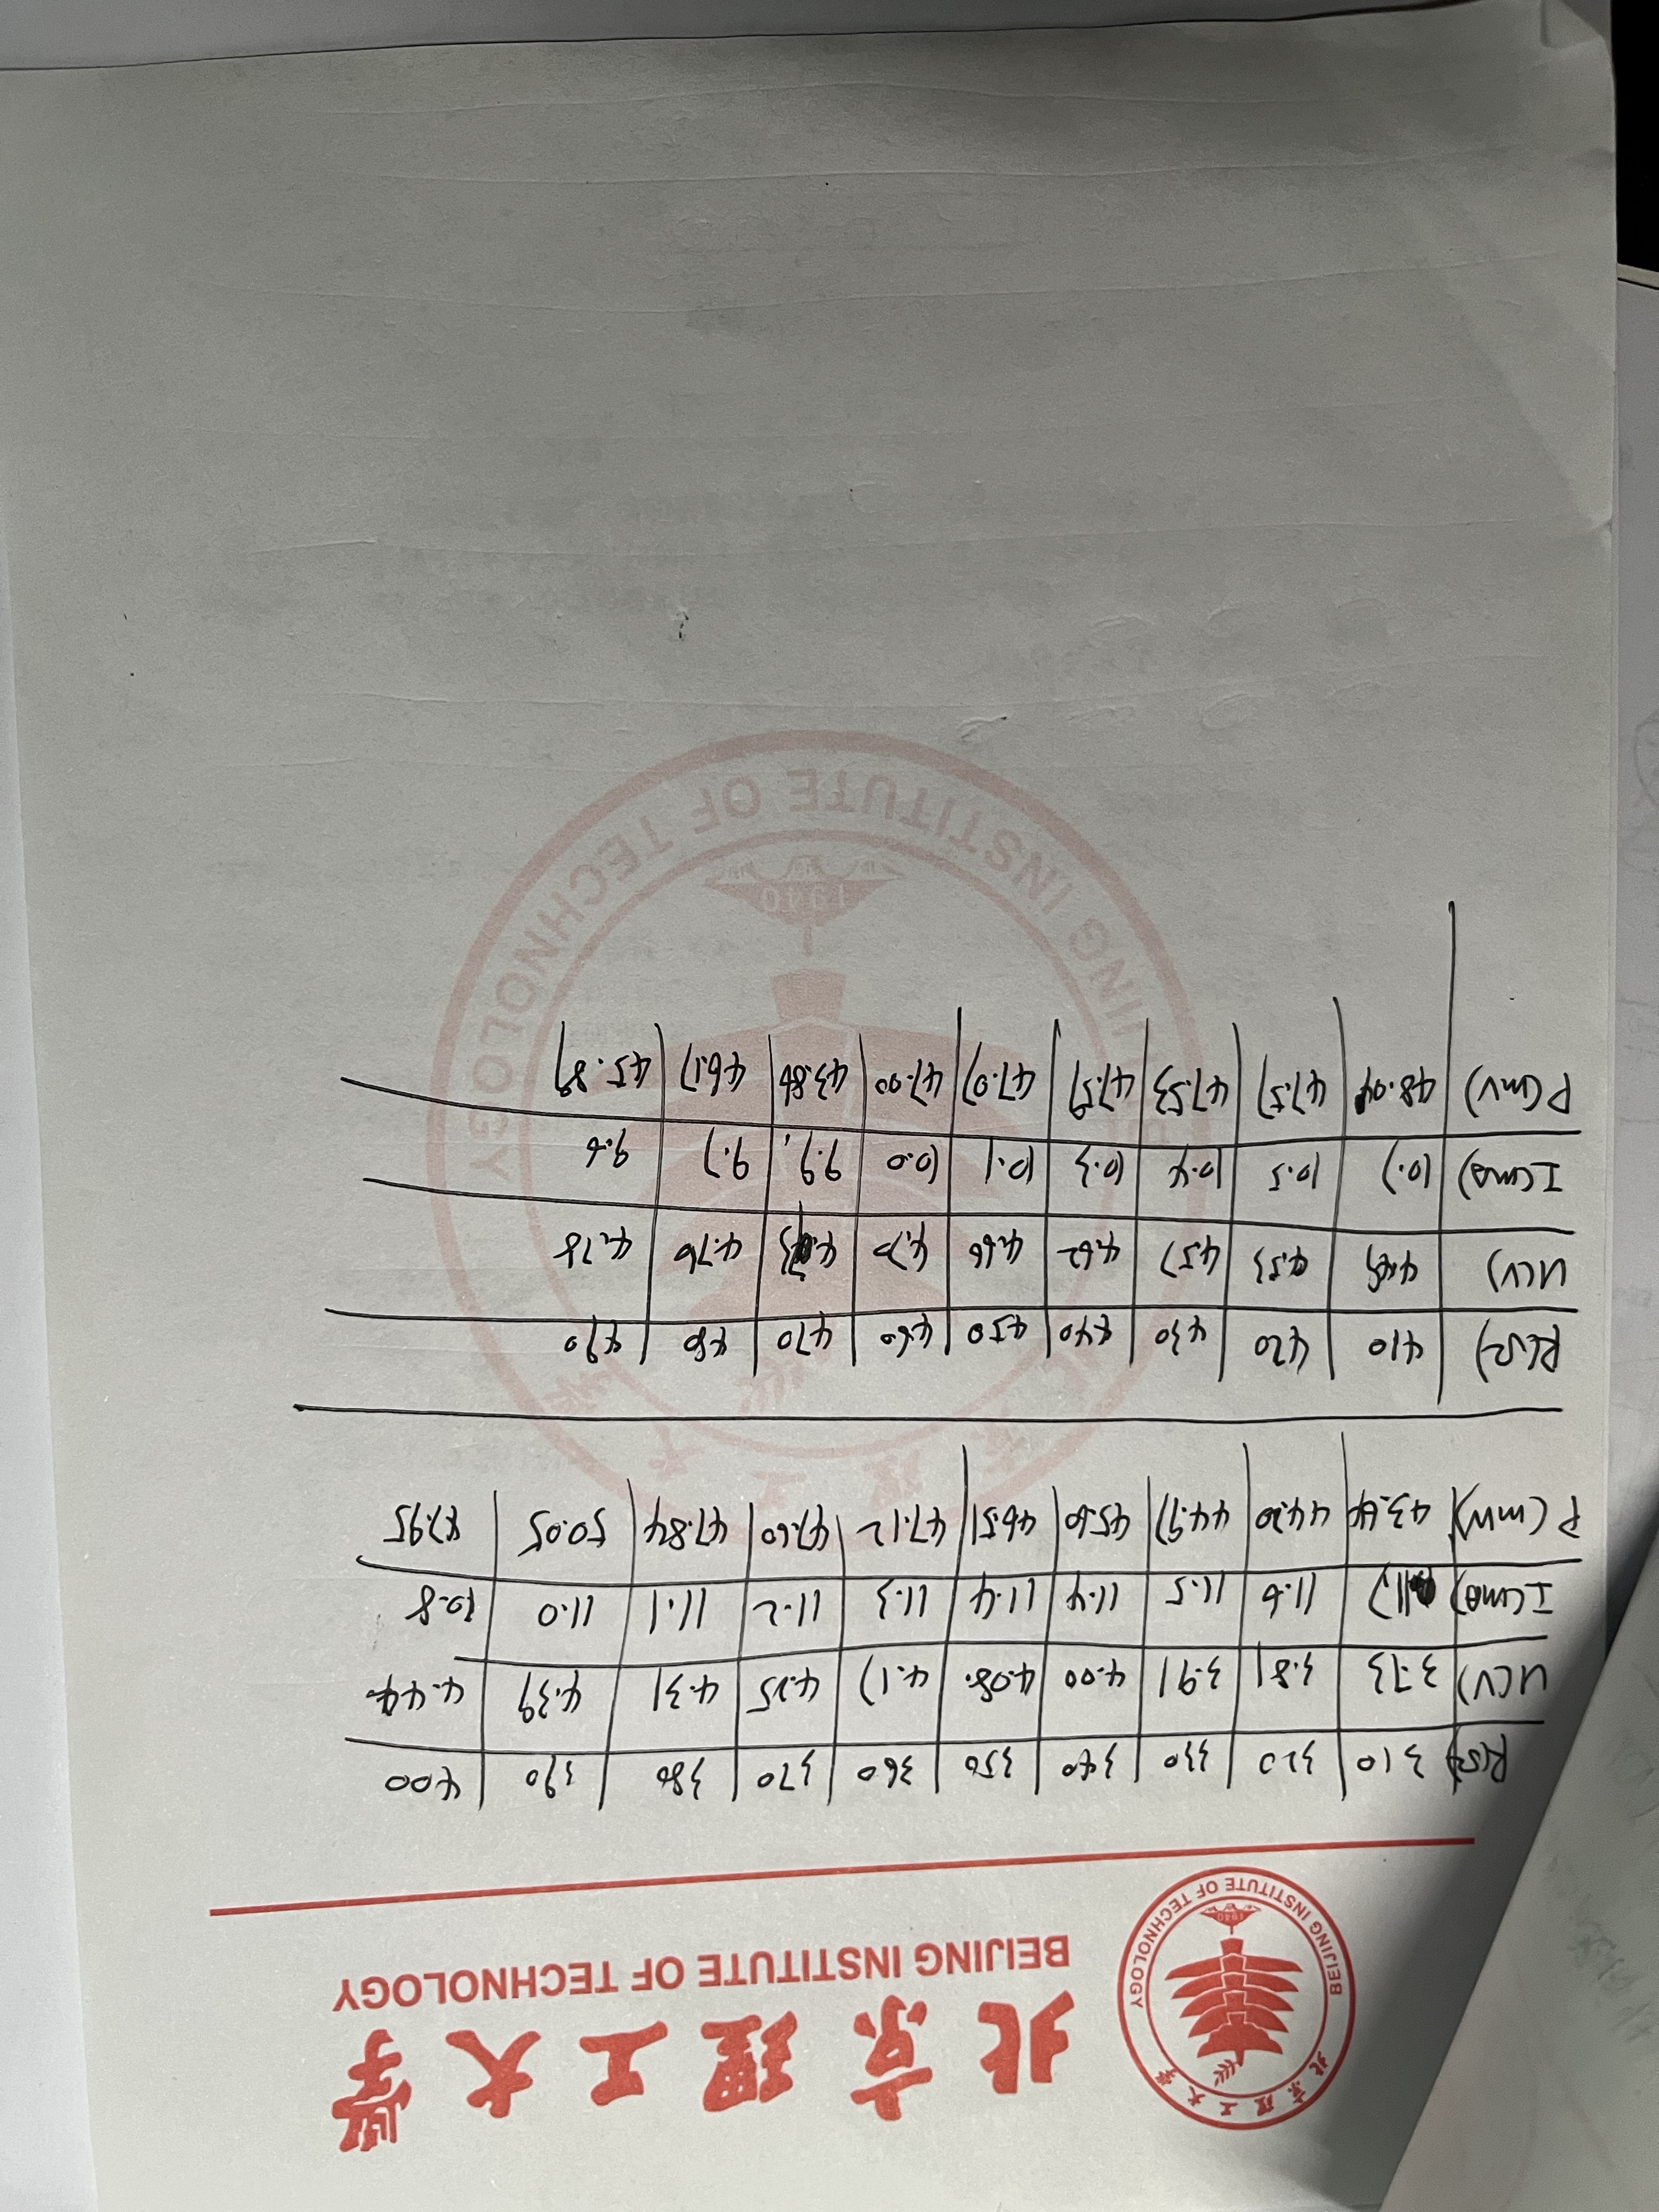 北京理工大学
BEIJING INSTITUTE OF TECHNOLOGY
北京理工大学
BEIJING INSTITUTE OF TECHNOLOGY
1940
R(Ω) 310 320 330 340 350 360 370 380 390 400
U(V) 3.73 3.81 3.91 4.00 4.08. 4.17 4.25 4.31 4.39 4.44
I(mA) 11.7 11.6 11.5 11.4 11.4 11.3 11.2 11.1 11.0 10.8
P(mW) 43.64 44.20 44.97 45.60 46.51 47.12 47.60 47.84 50.05 47.95
R(Ω) 410 420 430 440 450 460 470 480 490
U(V) 4.49 4.53 4.57 4.62 4.66 4.70 4.73 4.76 4.78
I(mA) 10.7 10.5 10.4 10.3 10.1 10.0 9.9. 9.7 9.6
P(mV) 48.04 47.57 47.53 47.59 47.07 47.00 43.86 46.17 45.89
1940
JING INSTITUTE OF TECHNOLOGY